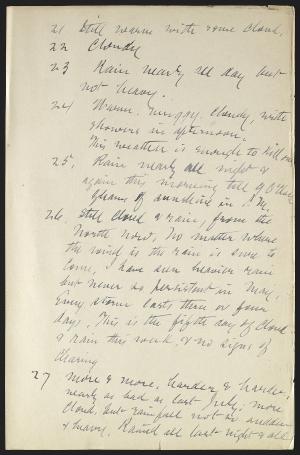 21 Still warm with some cloud.
22 Cloudy
23 Rain nearly all day but
not heavy.
24 Warm. Muggy, Cloudy, with
showers in afternoon.
This weather is enough to kill one
25, Rain nearly all night &
again this morning till 9 O'clock
Gleams of sunshine in P.M.
26, Still cloud & rain, from the
North West, No matter where
the wind is the rain is sure to
come, I have seen heavier rain
but never so persistent in May,
Every storm lasts three or four
days. This is the fifth day of cloud
& rain this week, & no signs of
clearing
27 More & more, harder & harder,
nearly as bad as last July; more
cloud, but rainfall not so sudden
& heavy. Rained all last night & all